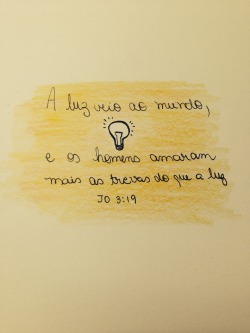 A luz veio ao mundo,
e os homens amaram
mais as trevas do que a luz
JO 3:19